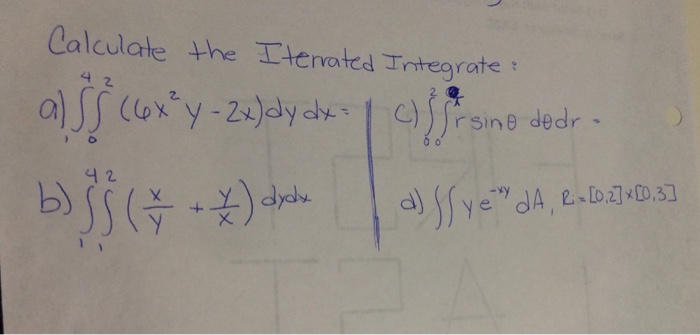 Calculate the Iterrated Integrate :
a) ∫₁⁴∫₀² (6x²y - 2x) dy dx =
b) ∫₁⁴∫₁² (x/y + y/x) dydx
c) ∫₀²∫₀^π r sinθ dθdr =
d) ∫∫ ye^(-xy) dA, R = [0,2]×[0,3]